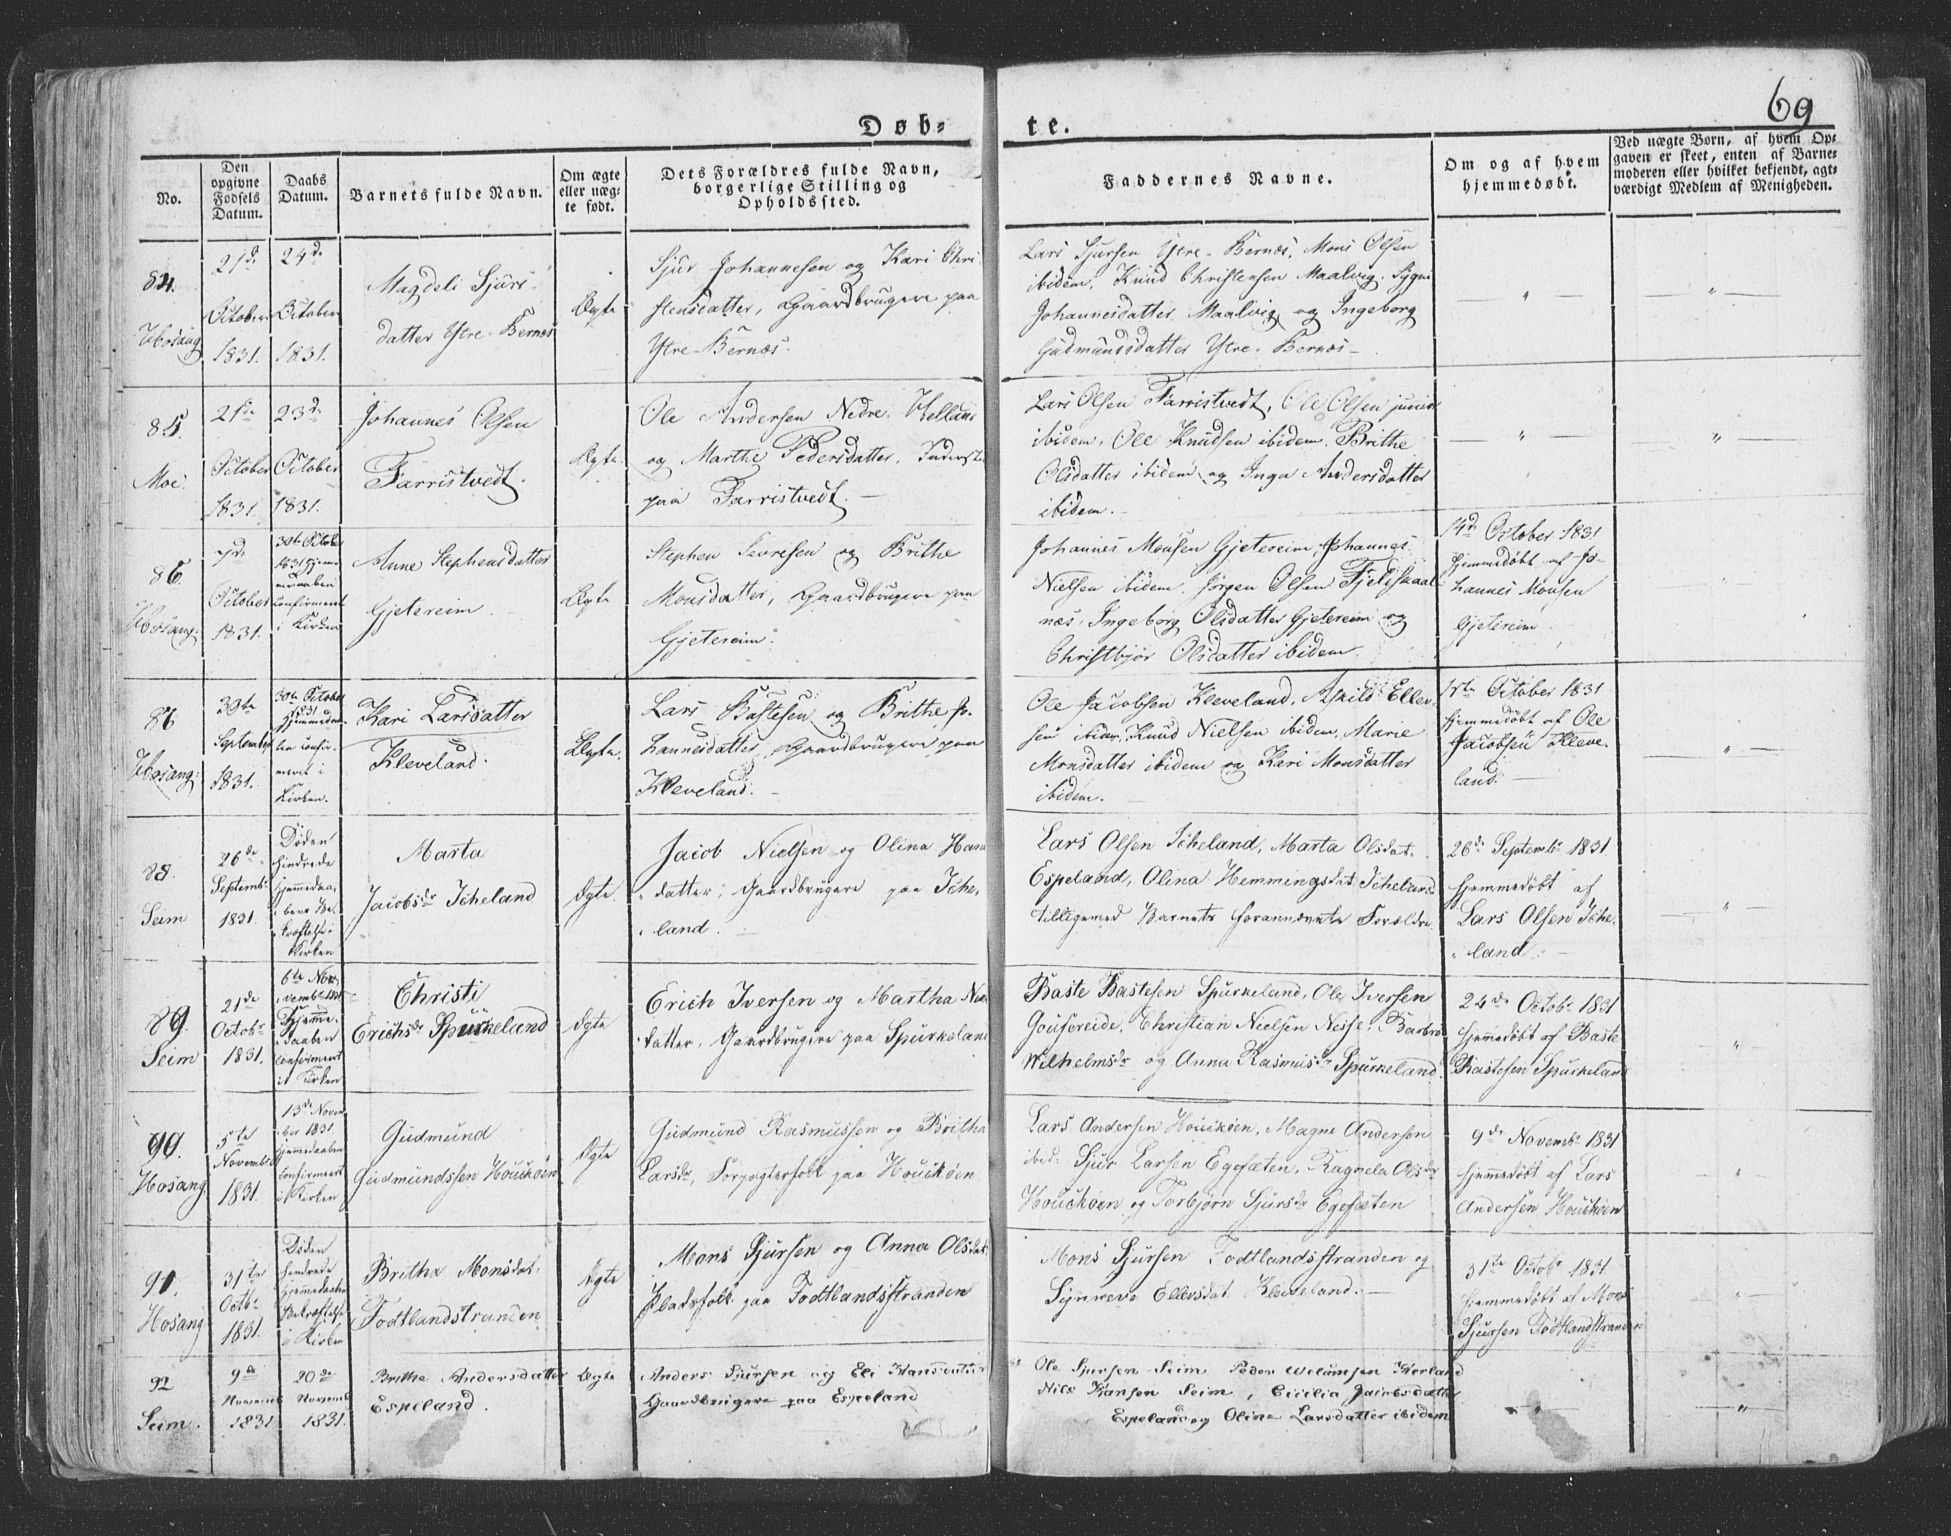 69
Døb-
te.
No.
Den
opgivne
Fødsels
Datum.
Daabs
Datum.
Barnets fulde Navn.
Om ægte
eller uæg-
te født.
Dets Forældres fulde Navn,
borgerlige Stilling og
Opholdssted.
Faddernes Navne.
Om og af hvem
hjemmedøbt.
Ved uægte Børn, af hvem Op-
gaven er skeet, enten af Barne-
moderen eller hvilket bekjendt, agt-
værdigt Medlem af Menigheden.
84.
Hosang
21de
October
1831.
24de
October
1831.
Magdeli Sjurs-
datter Ytre-Bernæs
Ægte
Sjur Johannesen og Kari Chri
stensdatter, Gaardbrugere paa
Ytre-Bernæs.
Lars Sjursen Ytre-Bernæs, Mons Olsen
ibidem, Knud Christensen Maalvig,
Johannesdatter Maalvig og Ingeborg
Gudmundsdatter Ytre-Bernæs
— " —
— " —
85.
Moe.
21de
October
1831.
23de
October
1831.
Johannes Olsen
Farristvedt.
Ægte.
Ole Andersen Nedre-Helland
og Marthe Pedersdatter, Inderster
paa Farristvedt.
Lars Olsen Farristvedt, Ole Olsen junior
ibidem, Ole Knudsen ibidem, Brithe
Olsdatter ibidem og Inga Andersdatter
ibidem.
— " —
"
86.
Hosang.
7de
October
1831.
30te Octobr
1831 hjem-
medaaben
confirmeret
i Kirken
Anne Stephensdatter
Gjetereim.
Ægte
Stephen Sevrisen og Brithe
Monsdatter, Gaardbrugere paa
Gjetereim.
Johannes Monsen Gjetereim, Johannes
Nielsen ibidem, Jørgen Olsen Fjeldskaal-
næs, Ingeborg Olsdatter Gjetereim og
Christbjør Olsdatter ibidem.
14de October 1831
hjemmedøbt af Jo-
hannes Monsen
Gjetereim.
"
86
Hosang.
30te
September
1831.
30te October
1831
hjemmedaa-
ben confir-
meret i
Kirken.
Kari Larsdatter
Kleveland.
Ægte.
Lars Bastesen og Brithe Jo-
hannesdatter, Gaardbrugere paa
Kleveland.
Ole Jacobsen Kleveland, Askild Ellev-
sen ibidem, Knud Nielsen ibidem, Marie
Monsdatter ibidem og Kari Monsdatter
ibidem.
1ste October 1831
hjemmedøbt af Ole
Jacobsen Kleve-
land.
" —
88.
Seim
26de
Septembr
1831.
Døden
hindrede
hjemmedaa-
bens Be-
kræftelse i
Kirken
Marta
Jacobsdr Icheland
Ægte
Jacob Nielsen og Olina Hans
datter, Gaardbrugere paa Iche-
land.
Lars Olsen Icheland, Marta Olsdat.
Espeland, Olina Hemmingsdat. Icheland
tilligemed Barnets forannævnte Forældre
26de Septembr 1831
hjemmedøbt af
Lars Olsen Iche-
land.
"
89.
Seim
21de
Octobr
1831.
6te No-
vembr 1831
Hjemme-
daaben
confirmeret
i Kirken
Christi
Erichsdr Spurkeland
Ægte
Erich Iversen og Martha
datter, Gaardbrugere paa Spurkeland
Baste Bastesen Spurkeland, Ole Iversen
Christian Nielsen Neise, Barbro
Wilhelmsdr og Anna Rasmusdr Spurkeland.
24de Octobr 1831
hjemmedøbt af Baste
Bastesen Spurkeland
"
90.
Hosang.
5te
Novembr
1831.
13de Novem-
ber 1831.
hjemmedaaben
confirmeret
i Kirken
Gudmund
Gudmundssen Houkøen
Ægte
Gudmund Rasmussen og Britha
Larsdr, Forpagterfolk paa Houkøen
Lars Andersen Houkøen, Magne Andersen
ibid: Sjur Larsen Egesæten, Ragnela Olsdr
Houckøen og Torbjørn Sjursdr Egesæten
9de Novembr 1831
hjemmedøbt af Lars
Andersen Houckøen
"
91.
Hosang
31te
Octbr
1831.
Døden
hindrede
hjemmedaabens
Bekræftelse
i Kirken
Britha Monsdat.
Todtlandstranden
Ægte
Mons Sjursen og Anna Olsdat.
Pladsfolk paa Todtlandsstranden
Mons Sjursen Todtlandsstranden og
Synneva Ellevsdat. Kleveland.
31te Octobr 1831
hjemmedøbt af Mons
Sjursen Todtlandsstranden
"
92
Seim.
9de
Novemb
1831
20de
Novemb
1831.
Brithe Andersdatter
Espeland.
Ægte
Anders Sjursen og Eli Hansdatter
Gaardbrugere paa Espeland
Ole Sjursen Seim Peder Welomsen
Nils Hansen Seim, Cicilia Jacobsdatter
Espeland og Oline Larsdatter ibidem
— " —
— " —